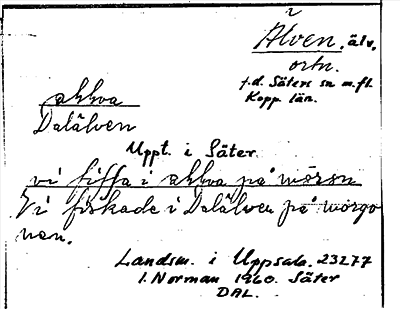 Älven, älv,
ortn.
f.d. Säters sn m.fl.
Kopp. län.
akkva
Dalälven
Uppt. i Säter.
vi fiffa i akkva på mörsn
Vi fiskade i Dalälven på morgo
nen.
Landsm. i Uppsala. 23277
I. Norman 1960. Säter
DAL.